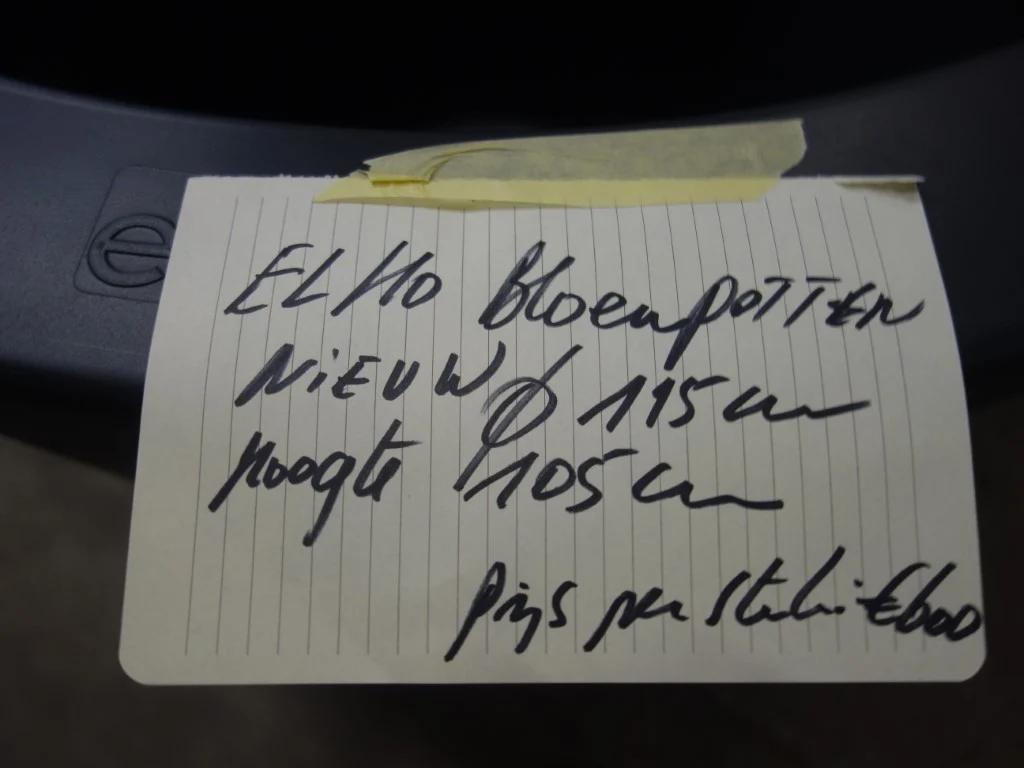 e
ELHO BloempOTTEN
NiEUW Ø 115 cm
Hoogte 105 cm
prijs per stuk: €600